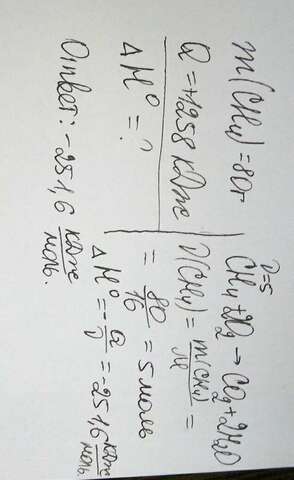 m(CH4) = 80г
Q = +1258 кДж
ΔH° = ?
ν=5
CH4 + 2O2 → CO2 + 2H2O
ν(CH4) = m(CH4)/M =
= 80/16 = 5 моль
ΔH° = - Q/ν = -251,6 кДж/моль.
Ответ: -251,6 кДж/моль.